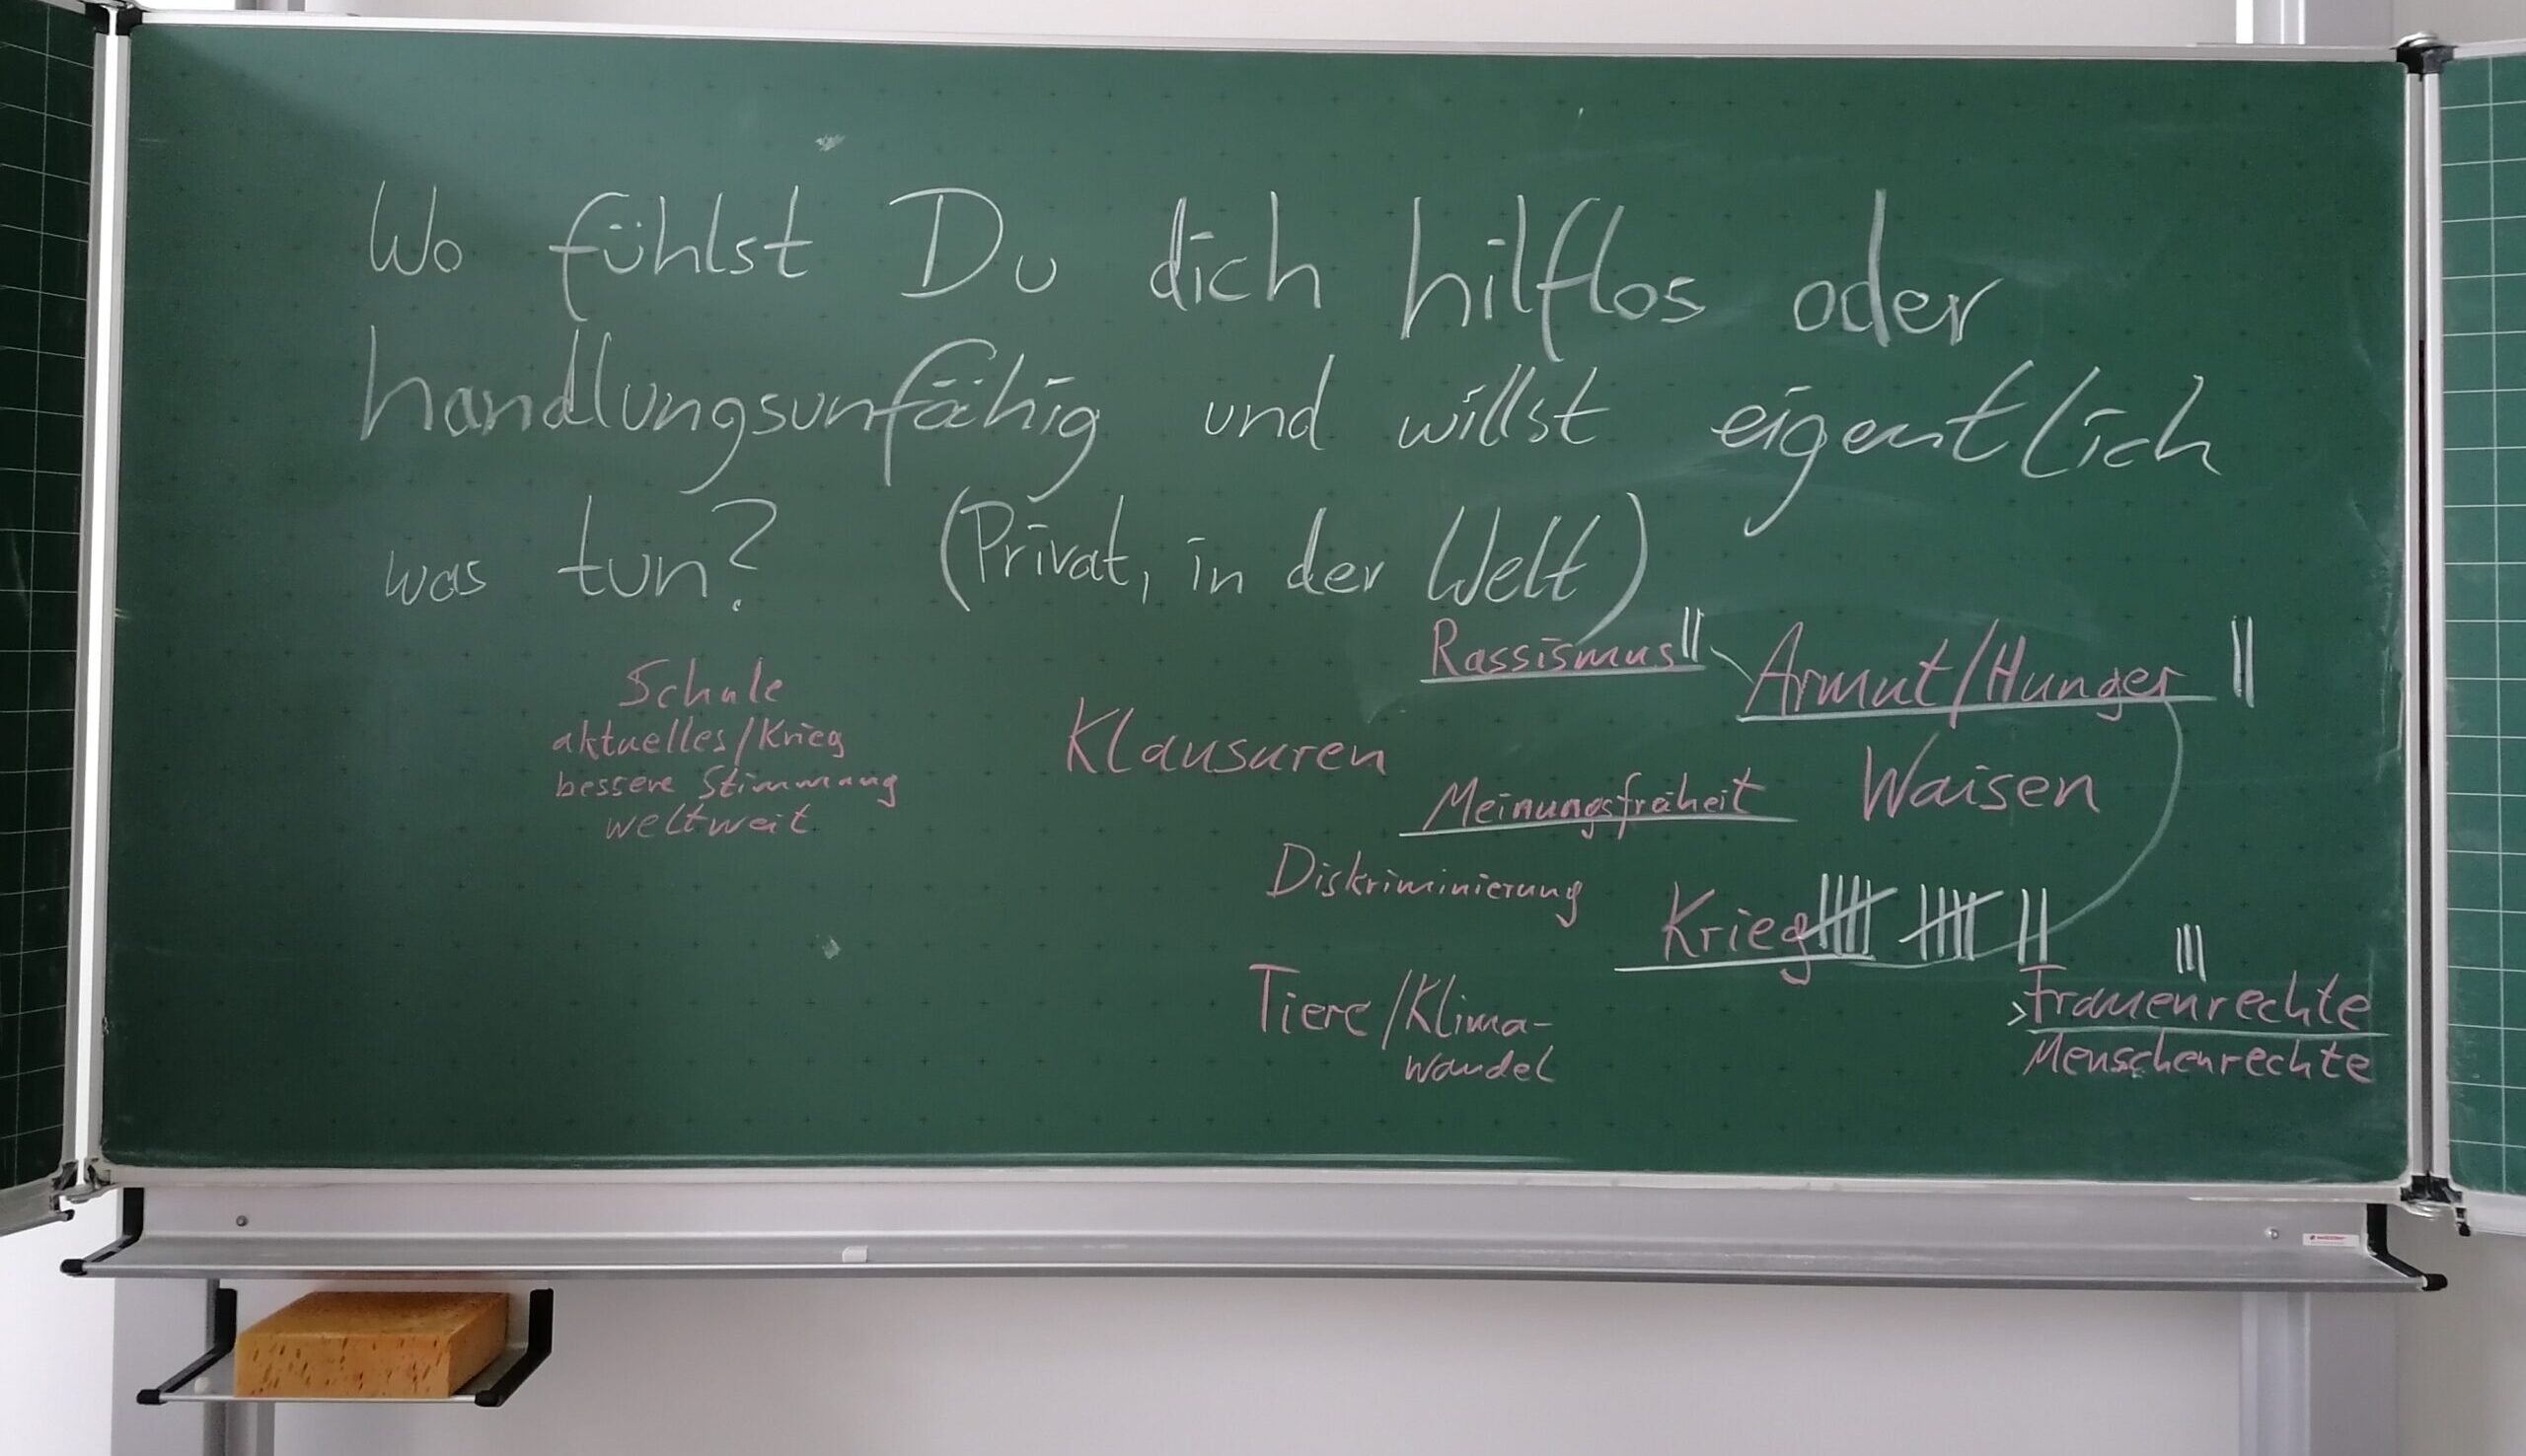 Wo fühlst Du dich hilflos oder
handlungsunfähig und willst eigentlich
was tun? (Privat, in der Welt)
Schule
aktuelles/Krieg
bessere Stimmung
weltweit
Klausuren
Rassismus
Armut/Hunger
Meinungsfreiheit
Waisen
Diskriminierung
Krieg
Tiere/Klima-
wandel
>Frauenrechte
Menschenrechte